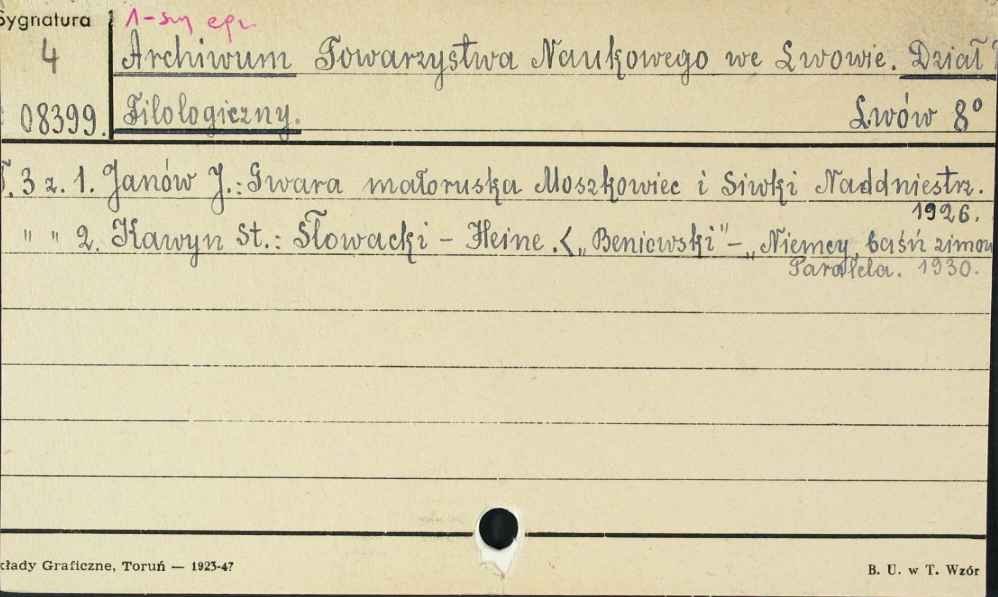 Sygnatura 1-szy egz.
4 Archiwum Towarzystwa Naukowego we Lwowie. Dział
08399. Filologiczny. Lwów 8°
T. 3 z. 1. Janów J.: Gwara małoruska Moszkowiec i Siwki Naddniestrz.
1926.
" " 2. Kawyn St.: Słowacki - Heine. < „Beniewski" - „Niemcy, baśń zimow
Paralela. 1930.
kłady Graficzne, Toruń — 1923-47
B. U. w T. Wzór